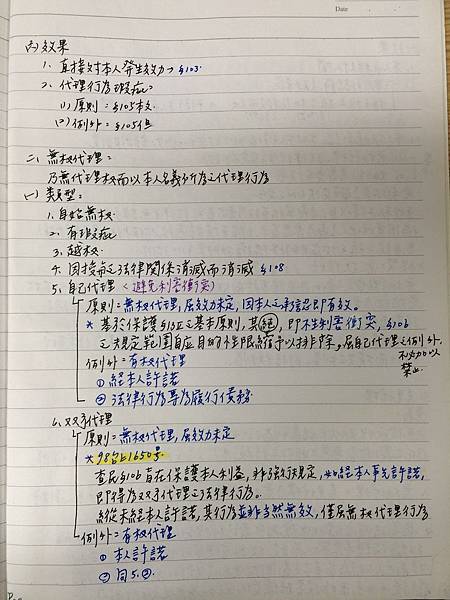 Date
(六)效果
1. 直接对本人発生效力→§103.
2. 代理行為瑕疵:
(1)原則=§105本文
(2)例外=§105但
二、無权代理:
乃無代理权而以本人名義所為之代理行為
(一)类型:
1. 自始無权.
2. 有瑕疵
3. 越权
4. 因授与之法律関係消滅而消滅 §108
5. 自己代理 <避免利害衝突>
原則=無权代理,屬效力未定,因本人之承認即有效。
* 基於保護 之基本原則,其 ,即不生利害衝突,§106
之規定範围自应目的性限縮予以排除,屬自己代理之例外.
不必加以
禁止.
例外=有权代理
① 経本人許諾
② 法律行為專為履行債務
6. 双方代理
原則=無权代理,屬效力未定
*98台上1650号.
查民§106旨在保護本人利益,非強行規定,如経本人事先許諾,
即得為双方代理之法律行為。
縱未経本人許諾,其行為並非当然無效,僅屬無权代理行為
例外=有权代理
① 本人許諾
② 同5.②.